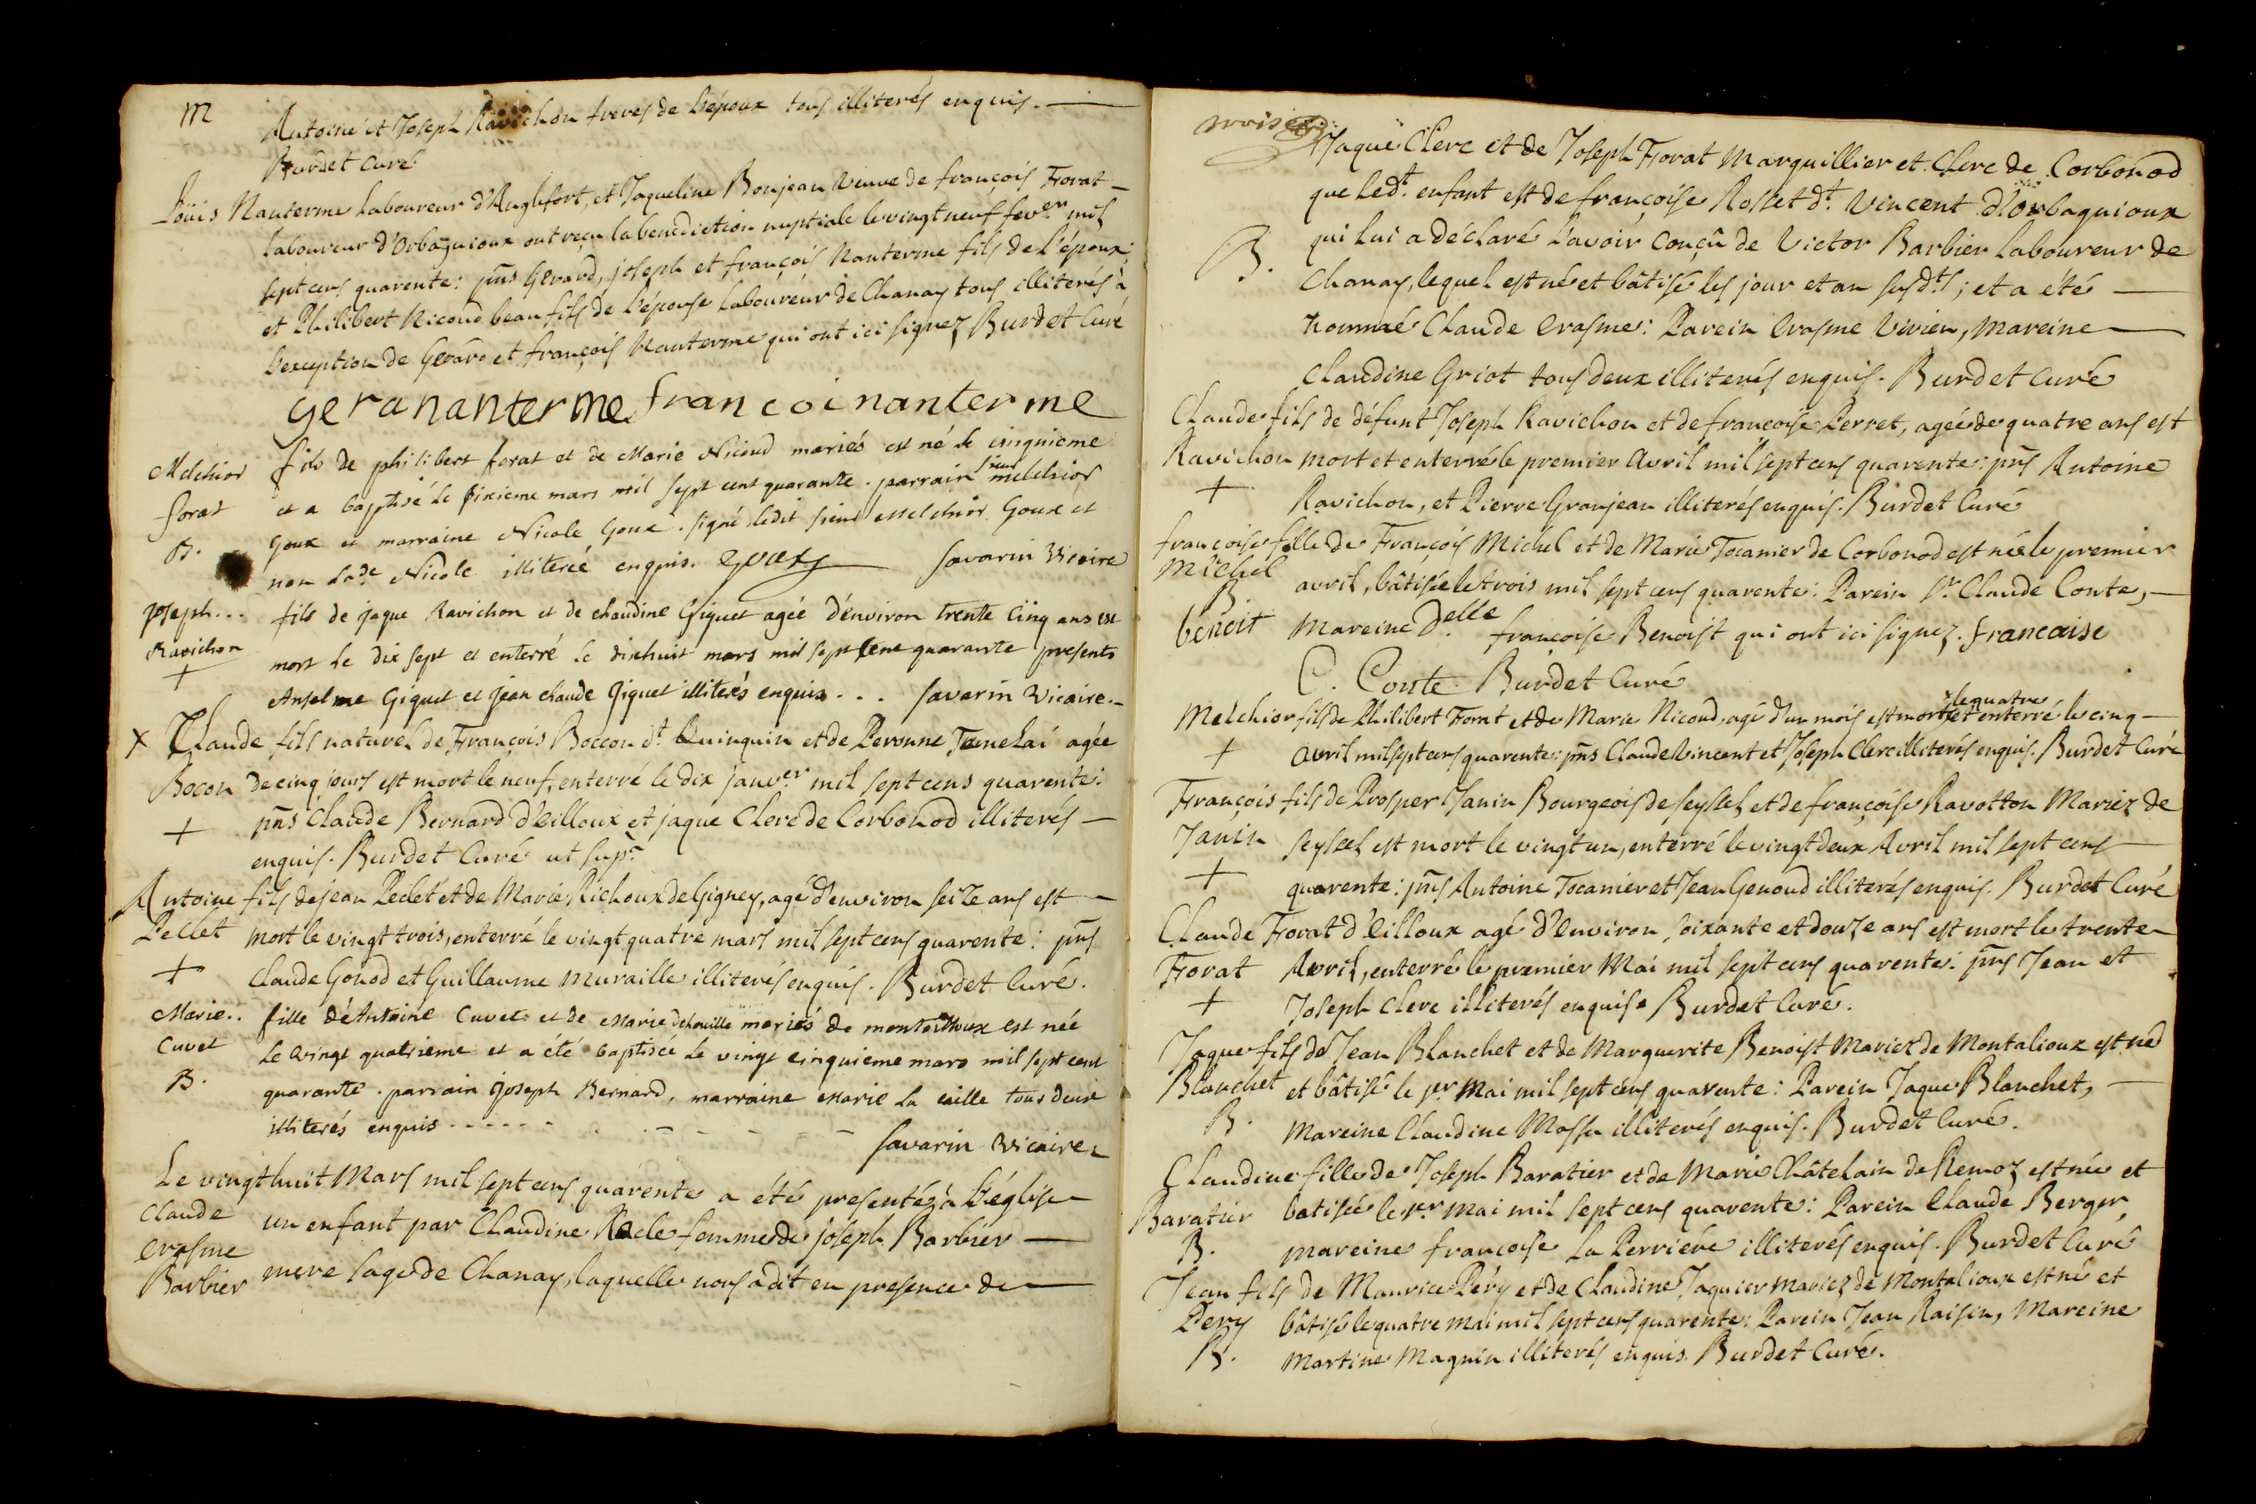 M
Antoine et Joseph Ravichon freres de L'époux tous illiterés enquis.
Burdet Curé
Loüis Nanterme Laboureur d'Anglefort, et Jaqueline Bonjean Veuve de françois Forat
Laboureur d'Orbagnioux ont reçu la benediction nuptiale le vingt neuf fev.er mil
sept cens quarente: pñs Gerard, joseph et françois Nanterme fils de L'époux;
et Philibert Nicoud beau fils de L'épouse Laboureur de Chanay tous illiterés à
L'exception de Gerard et françois Nanterme qui ont ici signez Burdet Curé
gera nanterme francoi nanterme
Melchior fils de philibert forat et de Marie Nicoud mariés est né le cinquieme
forat et a baptisé le sixieme mars mil sept cent quarante. parrain sieur melchior
B. Goux et marraine Nicole Goux. signé ledit sieur Melchior Goux et
non lade Nicole illiterée enquis. goux savarin Vicaire
Joseph... fils de jaque Ravichon et de claudine Giguet agée d'environ trente cinq ans est
Ravichon mort le dix sept et enterré le dixhuit mars mil sept cent quarante presents
+ Anselme Giguet et jean claude Giguet illiterés enquis... savarin Vicaire.
x Claude fils naturel de François Boccon dt. Quinquin et de Peronne agée
Bocon de cinq jours est mort le neuf, enterré le dix janv.er mil sept cens quarente:
+ pñs Claude Bernard d'Eilloux et jaque Clerc de Corbonod illiterés
enquis. Burdet Curé ut sup.
Antoine fils de jean Peclet et de Marie Richoux de Gigney, agé d'environ seize ans est
Peclet mort le vingt trois, enterré le vingt quatre mars mil sept cens quarente: pñs
+ Claude Gonod et Guillaume Muraille illiterés enquis. Burdet Curé.
Marie.. fille d'Antoine Cuvet et de Marie mariés de montailloux est née
Cuvet le vingt quatrieme et a été baptisée le vingt cinquieme mars mil sept cent
B. quarante. parrain joseph Bernard, marraine Marie La caille tous deux
illiterés enquis savarin Vicaire
Le vingt huit Mars mil sept cens quarente a été presentéz à L'église
Claude un enfant par Claudine Racle femme de joseph Barbier
Erasme
Barbier mere sage de Chanay, laquelle nous a dit en presence de
trois
Jaque Clerc et de Joseph Forat Marguillier et Clerc de Corbonod
que ledt. enfant est de françoise Rosset dt. Vincent d'Orbagnioux
B. qui lui a déclaré l'avoir conçû de Victor Barbier Laboureur de
Chanay, lequel est né et bâtisé les jour et an susdts; et a été
nommé Claude Erasme: Parein Erasme Vivien, Mareine
Claudine Griot tous deux illiterés enquis. Burdet Curé
Claude fils de défunt Joseph Ravichon et de françoise Perret, agée de quatre ans est
Ravichon mort et enterré le premier Avril mil sept cens quarente: pñs Antoine
+ Ravichon, et Pierre Granjean illiterés enquis. Burdet Curé
françoise fille de François Michel et de Marie Tocanier de Corbonod est née le premier
Michel avril, bâtisée le trois mil sept cens quarente: Parein Sr. Claude Conte,
B.
benoit Mareine D.elle françoise Benoist qui ont ici signez. francaise
C. Conte Burdet Curé
Melchior fils de Philibert Forat et de Marie Nicoud, agé d'un mois est mort le quatre et enterré le cinq
+ Avril mil sept cens quarente: pñs Claude Vincent et Joseph Clerc illiterés enquis. Burdet Curé
François fils de Prosper Janin Bourgeois de Seyssel et de françoise Ravotton Mariez de
Janin Seyssel est mort le vingt un, enterré le vingt deux Avril mil sept cens
+ quarente: pñs Antoine Tocanier et Jean Genoud illiterés enquis. Burdet Curé
Claude Forat d'Eilloux agé d'environ soixante et douze ans est mort le trente
Forat Avril, enterré le premier Mai mil sept cens quarente. pñs Jean et
+ Joseph Clerc illiterés enquis. Burdet Curé.
Jaque fils de Jean Blanchet et de Marguerite Benoist Mariez de Montalioux est né
Blanchet et bâtisé le jer. Mai mil sept cens quarente: Parein Jaque Blanchet,
B. Mareine Claudine Massu illiterés enquis. Burdet Curé.
Claudine fille de Joseph Baratier et de Marie Châtelain de Remoz est née et
Baratier batisée le jer Mai mil sept cens quarente: Parein Claude Berger,
B. mareine françoise La Perriere illiterés enquis. Burdet Curé
Jean fils de Maurice Péry et de Claudine Jaquier mariez de Montalioux est né et
Pery bâtisé le quatre mai mil sept cens quarente: Parein Jean Raisin, Mareine
B. Martine Magnin illiterés enquis. Burdet Curé.